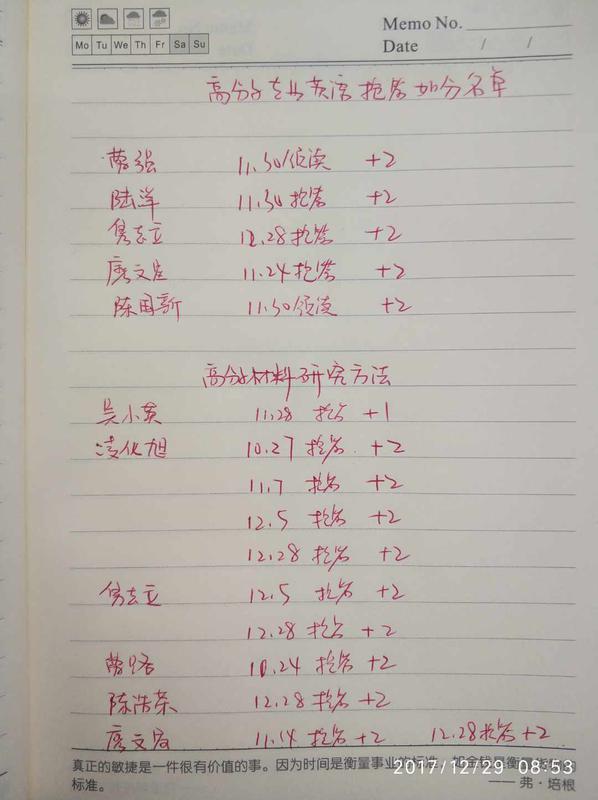 Memo No.
Mo Tu We Th Fr Sa Su
Date / /
高分子专业英语抢答加分名单
强 11.30领读 +2
陆洋 11.30抢答 +2
12.28抢答 +2
唐文 11.24抢答 +2
陈国新 11.30领读 +2
高分子材料研究方法
吴小英 11.28 抢答 +1
凌化旭 10.27 抢答 +2
11.7 抢答 +2
12.5 抢答 +2
12.28 抢答 +2
12.5 抢答 +2
12.28 抢答 +2
10.24 抢答 +2
陈浩荣 12.28 抢答 +2
唐文 11.14 抢答 +2 12.28抢答 +2
真正的敏捷是一件很有价值的事。因为时间是衡量事业的标准,
2017/12/29 08:53
标准。 —— 弗·培根